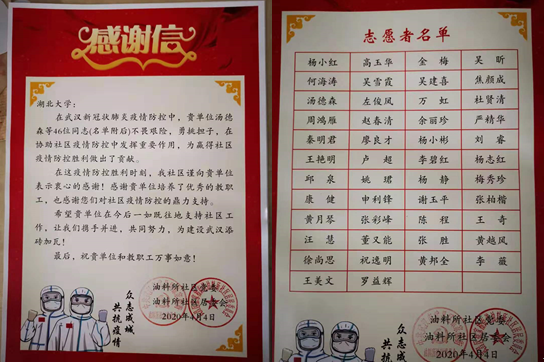 感谢信
湖北大学：
在武汉新冠状肺炎疫情防控中，贵单位汤德
森等46位同志(名单附后)不畏艰险，勇挑担子，在
协助社区疫情防控中发挥重要作用，为赢得社区
疫情防控胜利做出了贡献。
在这疫情防控胜利时刻，我社区谨向贵单位
表示衷心的感谢！感谢贵单位培养了优秀的教职
工，也感谢您们对社区疫情防控的鼎力支持。
希望贵单位在今后一如既往地支持社区工
作，让我们携手并进，共同努力，为建设武汉添
砖加瓦！
最后，祝贵单位和教职工万事如意！
众志成城
共抗疫情
油料所社区党委
油料所社区居委会
2020年4月4日
志愿者名单
杨小红 高玉华 金梅 吴昕
何海涛 吴雪霞 吴建喜 焦颜成
汤德森 左俊凤 万虹 杜贤清
周鸿雁 赵春清 余丽珍 严精华
秦明君 廖良才 杨小彬 刘睿
王艳明 卢超 李碧红 杨志红
邱泉 姚珺 杨静 梅秀珍
康健 申利锋 谢玉平 张柏榴
黄月琴 张彩峰 陈程 王奇
汪慧 董又能 张胜 黄越风
徐尚思 祝逸明 黄邦全 李薇
王美文 罗益辉
众志成城
共抗疫情
油料所社区党委
油料所社区居委会
2020年4月4日